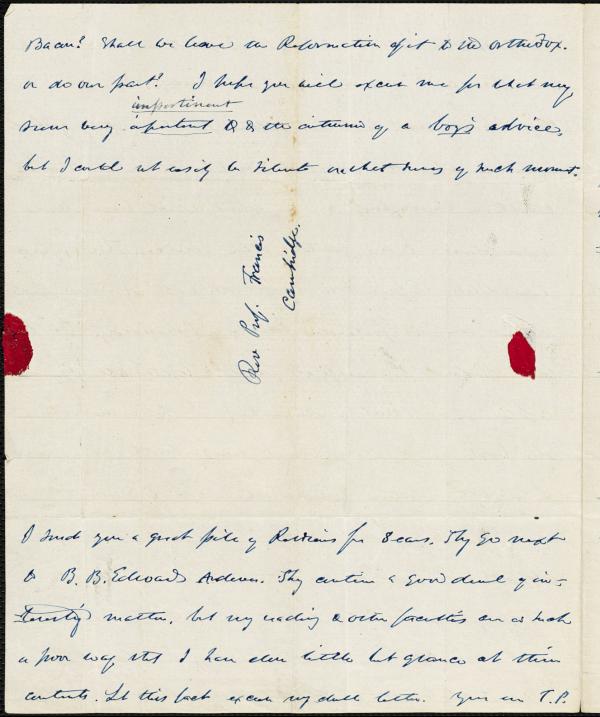 Bacon? Shall we leave the Reformation of it to the orthodox.
or do our part? I hope you will excuse me for that may
impertinent
seem very & the of a boy's advice,
but I could not easily be silent on matters of such moment.
Rev Prof. Francis
Cambridge.
I send you a great pile of Reviews for 3 cars. They go next
to B. B. Edwards Andover. They contain a good deal of in-
teresting matter, but my reading & other faculties are in such
a poor way that I have done little but glance at their
contents. Let this fact excuse my dull letter. Yours ever T.P.